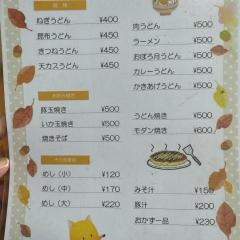 麺類
ねぎうどん ¥400
昆布うどん ¥450
きつねうどん ¥450
天カスうどん ¥450
肉うどん ¥500
ラーメン ¥500
おぼろ月うどん ¥500
カレーうどん ¥500
かきあげうどん ¥500
お好み焼き
豚玉焼き ¥500
いか玉焼き ¥500
焼きそば ¥500
うどん焼き ¥500
モダン焼き ¥600
めし（小） ¥120
めし（中） ¥170
めし（大） ¥220
みそ汁 ¥150
豚汁 ¥200
おかず一品 ¥230